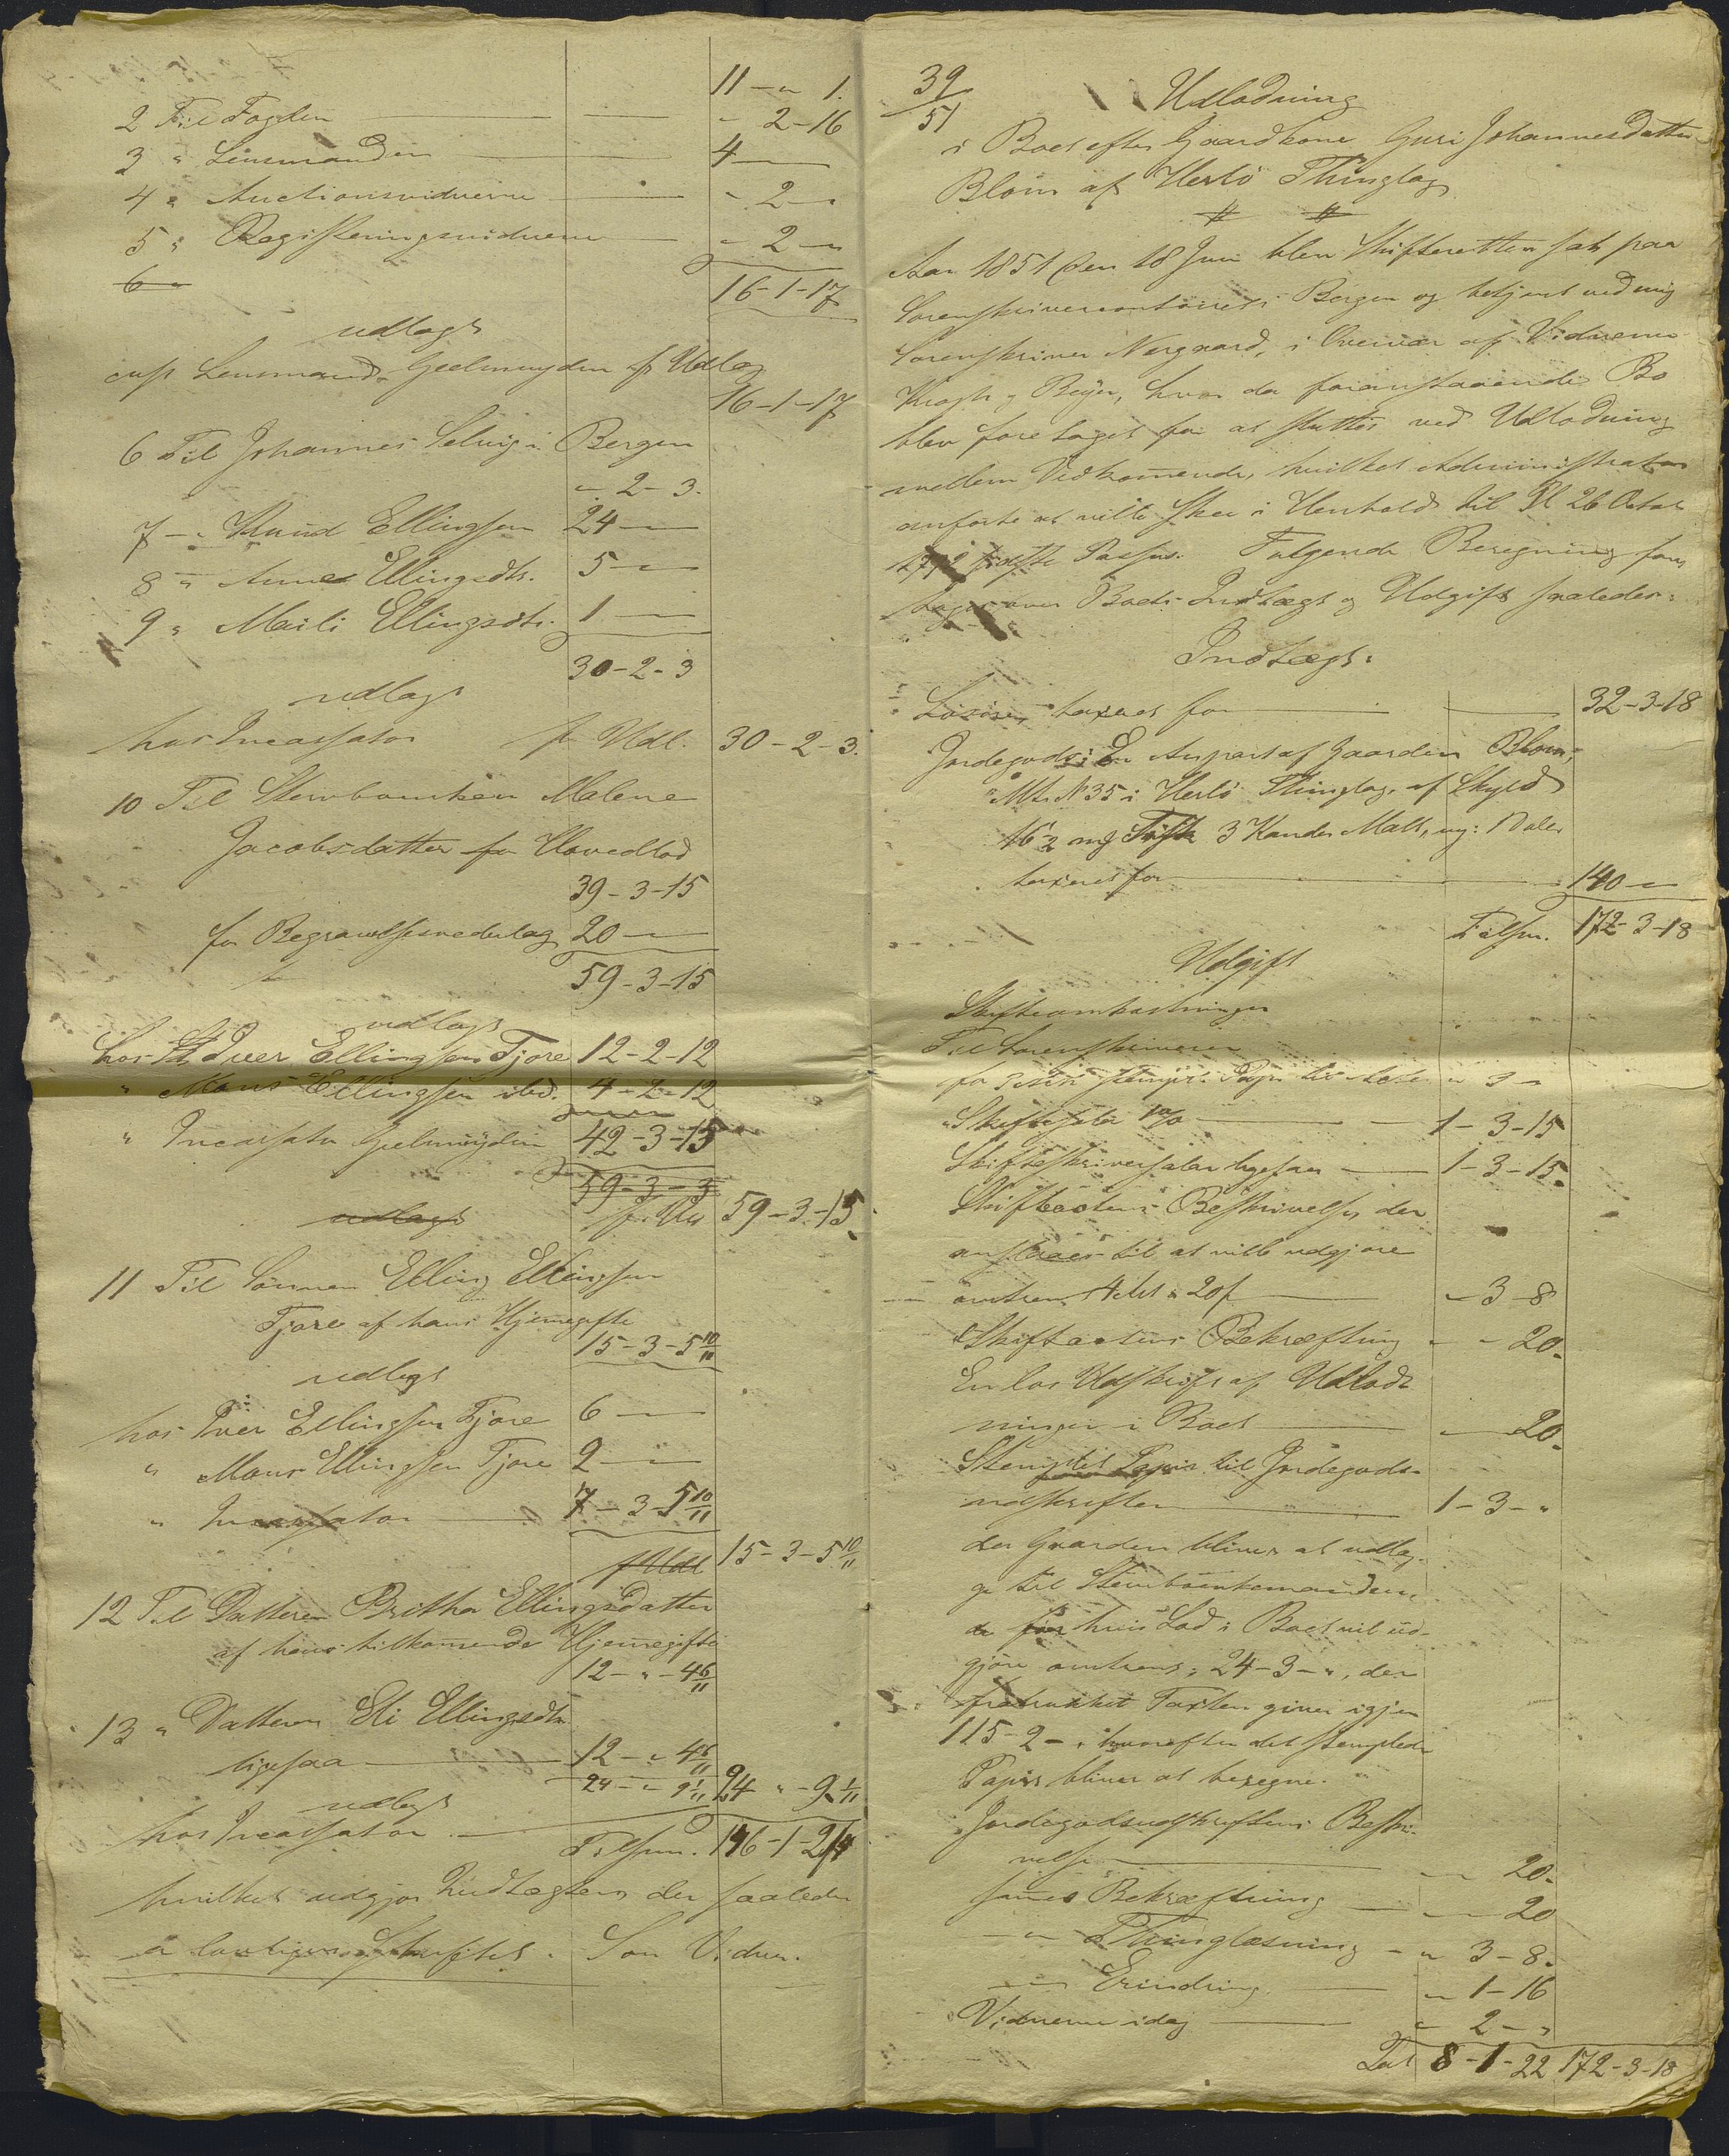 11 - " 1.
2 Til Fogden - " 2-16
3 " Lensmanden 4 -
4 " Auctionsvidnerne - 2 -
5 " Registeringsvidnerne - 2 -
6 "
16-1-17
udlagt
Lensmand Geelmuyden f Udlæg
16-1-17
6 Til Johannes Selvig i Bergen
" - 2 - 3.
7 - " Knud Ellingsen 24 -
8 " Anne Ellingsdtr. 5 -
9 " Marli Ellingsdtr. 1 -
30-2-3
udlagt
hos Incassator fr Udl. 30-2-3.
10 Til Stervboenken Malene
Jacobsdatter for Hovedlod
39-3-15
for Begravelsesvederlag 20 -
59-3-15
udlagt
hos Iver Ellingsen Fjore 12-2-12
" Mons Ellingsen ibd. 4-2-12
" Incassator Gelmuyden 42-3-15
59-3-3
udlagt 59-3-15
11 Til Sønnen Elling Ellingsen
Fjore af hans Hjemegifte
15-3-5 10/11
udlagt
hos Iver Ellingsen Fjore 6 -
" Mons Ellingsen Fjore 2 -
" Incassator 7-3-5 10/11
f Udl 15-3-5 10/11
12 Til Datteren Britha Ellingsdatter
af hans tilkommende Hjemegifte
12 - " - 4 6/11
13 " Datteren Eli Ellingsdtr
ligesaa 12 - " 4 6/11
24 - " 9 1/11 24 " - 9 1/11
udlagt
hos Incassator
Tilsm. 146-1-2
hvilket udgjør Indtægten der saaledes
er lovligen skiftet. Som Vidner.
39
51
Udlodning
i Boet efter Gaardkone Guri Johannesdatter
Blom af Herlö Thinglag
Aar 1851 den 18 Juni blev Skifteretten sat paa
Sorenskrivercontoiret i Bergen og betjent ved mig
Sorenskriver Nørgaard, i Overvær af Vidnerne
Krogh og Beyer, hvor da foranstaaende Bo
blev foretaget for at sluttes ved Udlodning
mellem Vedkommende, hvilket Administrator
anførte at ville skee i Henhold til Pl 26 Octob
sidste Passus. Følgende Beregning fore
toges over Boets Indtægt og Udgift saaledes:
Indtægt:
Løsöre taxeret for 32-3-18
Jordegods: En Anpart af Gaarden Blom,
Mt. N 35 i Herlö Thinglag, af Skyld
16 1/2 mg Fisk 3 Kander Malt, ny: 1 Daler
taxeret for 140 -
Tilsm. 172-3-18
Udgift
Skifteomkostninger
Til Sorenskriveren
for stemp: Papir til " 3 -
Skiftesalar 1% 1-3-15
Skifteskriversalar ligesaa 1-3-15.
Skifteactens Beskrivelse der
ansaaes til at ville udgjøre
omtrent 4 Ark a 20 f - 3-8
Skifteactens Bekræftning - - 20.
En los Udskrift af Udlod-
ningen i Boet - - 20.
Stemplet Papir til Jordegods-
udskriften 1-3-"
der Gaarden bliver at udlæg-
ge til Stervboenkemanden,
hvis Lod i Boet vil ud-
gjøre omtrent: 24-3-", der
fratrukket Taxten giver igjen
115-2- " hvorefter det stemplede
Papir bliver at beregne.
Jordegodsudskriftens Beskri-
velse - - 20.
sammes Bekræftning - - 20
- " - Thinglæsning - " 3-8.
- " - Erindring - 1-16
Vidnerne idag " 2 - "
Lat 8-1-22 172-3-18